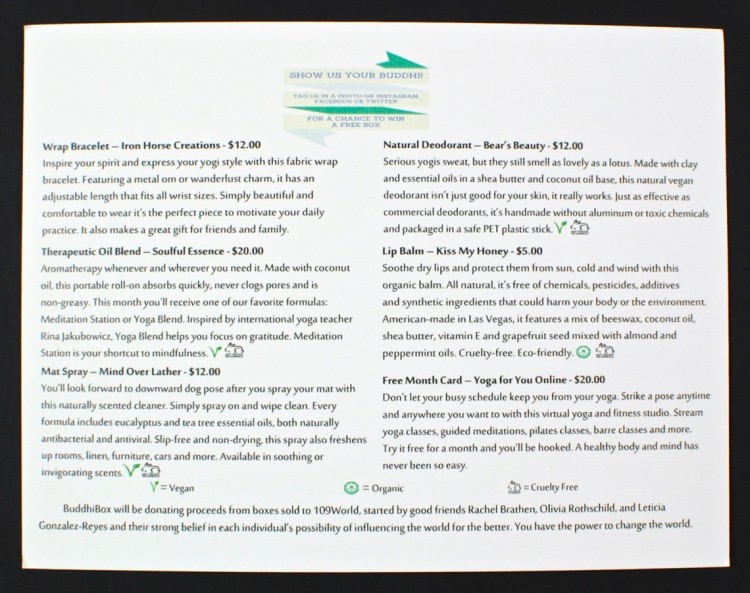 SHOW US YOUR BUDDHI!
TAG US IN A PHOTO ON INSTAGRAM,
FACEBOOK OR TWITTER
FOR A CHANCE TO WIN
A FREE BOX
Wrap Bracelet – Iron Horse Creations - $12.00
Inspire your spirit and express your yogi style with this fabric wrap
bracelet. Featuring a metal om or wanderlust charm, it has an
adjustable length that fits all wrist sizes. Simply beautiful and
comfortable to wear it's the perfect piece to motivate your daily
practice. It also makes a great gift for friends and family.
Therapeutic Oil Blend – Soulful Essence - $20.00
Aromatherapy whenever and wherever you need it. Made with coconut
oil, this portable roll-on absorbs quickly, never clogs pores and is
non-greasy. This month you'll receive one of our favorite formulas:
Meditation Station or Yoga Blend. Inspired by international yoga teacher
Rina Jakubowicz, Yoga Blend helps you focus on gratitude. Meditation
Station is your shortcut to mindfulness.
Mat Spray – Mind Over Lather - $12.00
You'll look forward to downward dog pose after you spray your mat with
this naturally scented cleaner. Simply spray on and wipe clean. Every
formula includes eucalyptus and tea tree essential oils, both naturally
antibacterial and antiviral. Slip-free and non-drying, this spray also freshens
up rooms, linen, furniture, cars and more. Available in soothing or
invigorating scents.
Natural Deodorant – Bear's Beauty - $12.00
Serious yogis sweat, but they still smell as lovely as a lotus. Made with clay
and essential oils in a shea butter and coconut oil base, this natural vegan
deodorant isn't just good for your skin, it really works. Just as effective as
commercial deodorants, it's handmade without aluminum or toxic chemicals
and packaged in a safe PET plastic stick.
Lip Balm – Kiss My Honey - $5.00
Soothe dry lips and protect them from sun, cold and wind with this
organic balm. All natural, it's free of chemicals, pesticides, additives
and synthetic ingredients that could harm your body or the environment.
American-made in Las Vegas, it features a mix of beeswax, coconut oil,
shea butter, vitamin E and grapefruit seed mixed with almond and
peppermint oils. Cruelty-free. Eco-friendly.
Free Month Card – Yoga for You Online - $20.00
Don't let your busy schedule keep you from your yoga. Strike a pose anytime
and anywhere you want to with this virtual yoga and fitness studio. Stream
yoga classes, guided meditations, pilates classes, barre classes and more.
Try it free for a month and you'll be hooked. A healthy body and mind has
never been so easy.
= Vegan = Organic = Cruelty Free
BuddhiBox will be donating proceeds from boxes sold to 109World, started by good friends Rachel Brathen, Olivia Rothschild, and Leticia
Gonzalez-Reyes and their strong belief in each individual's possibility of influencing the world for the better. You have the power to change the world.